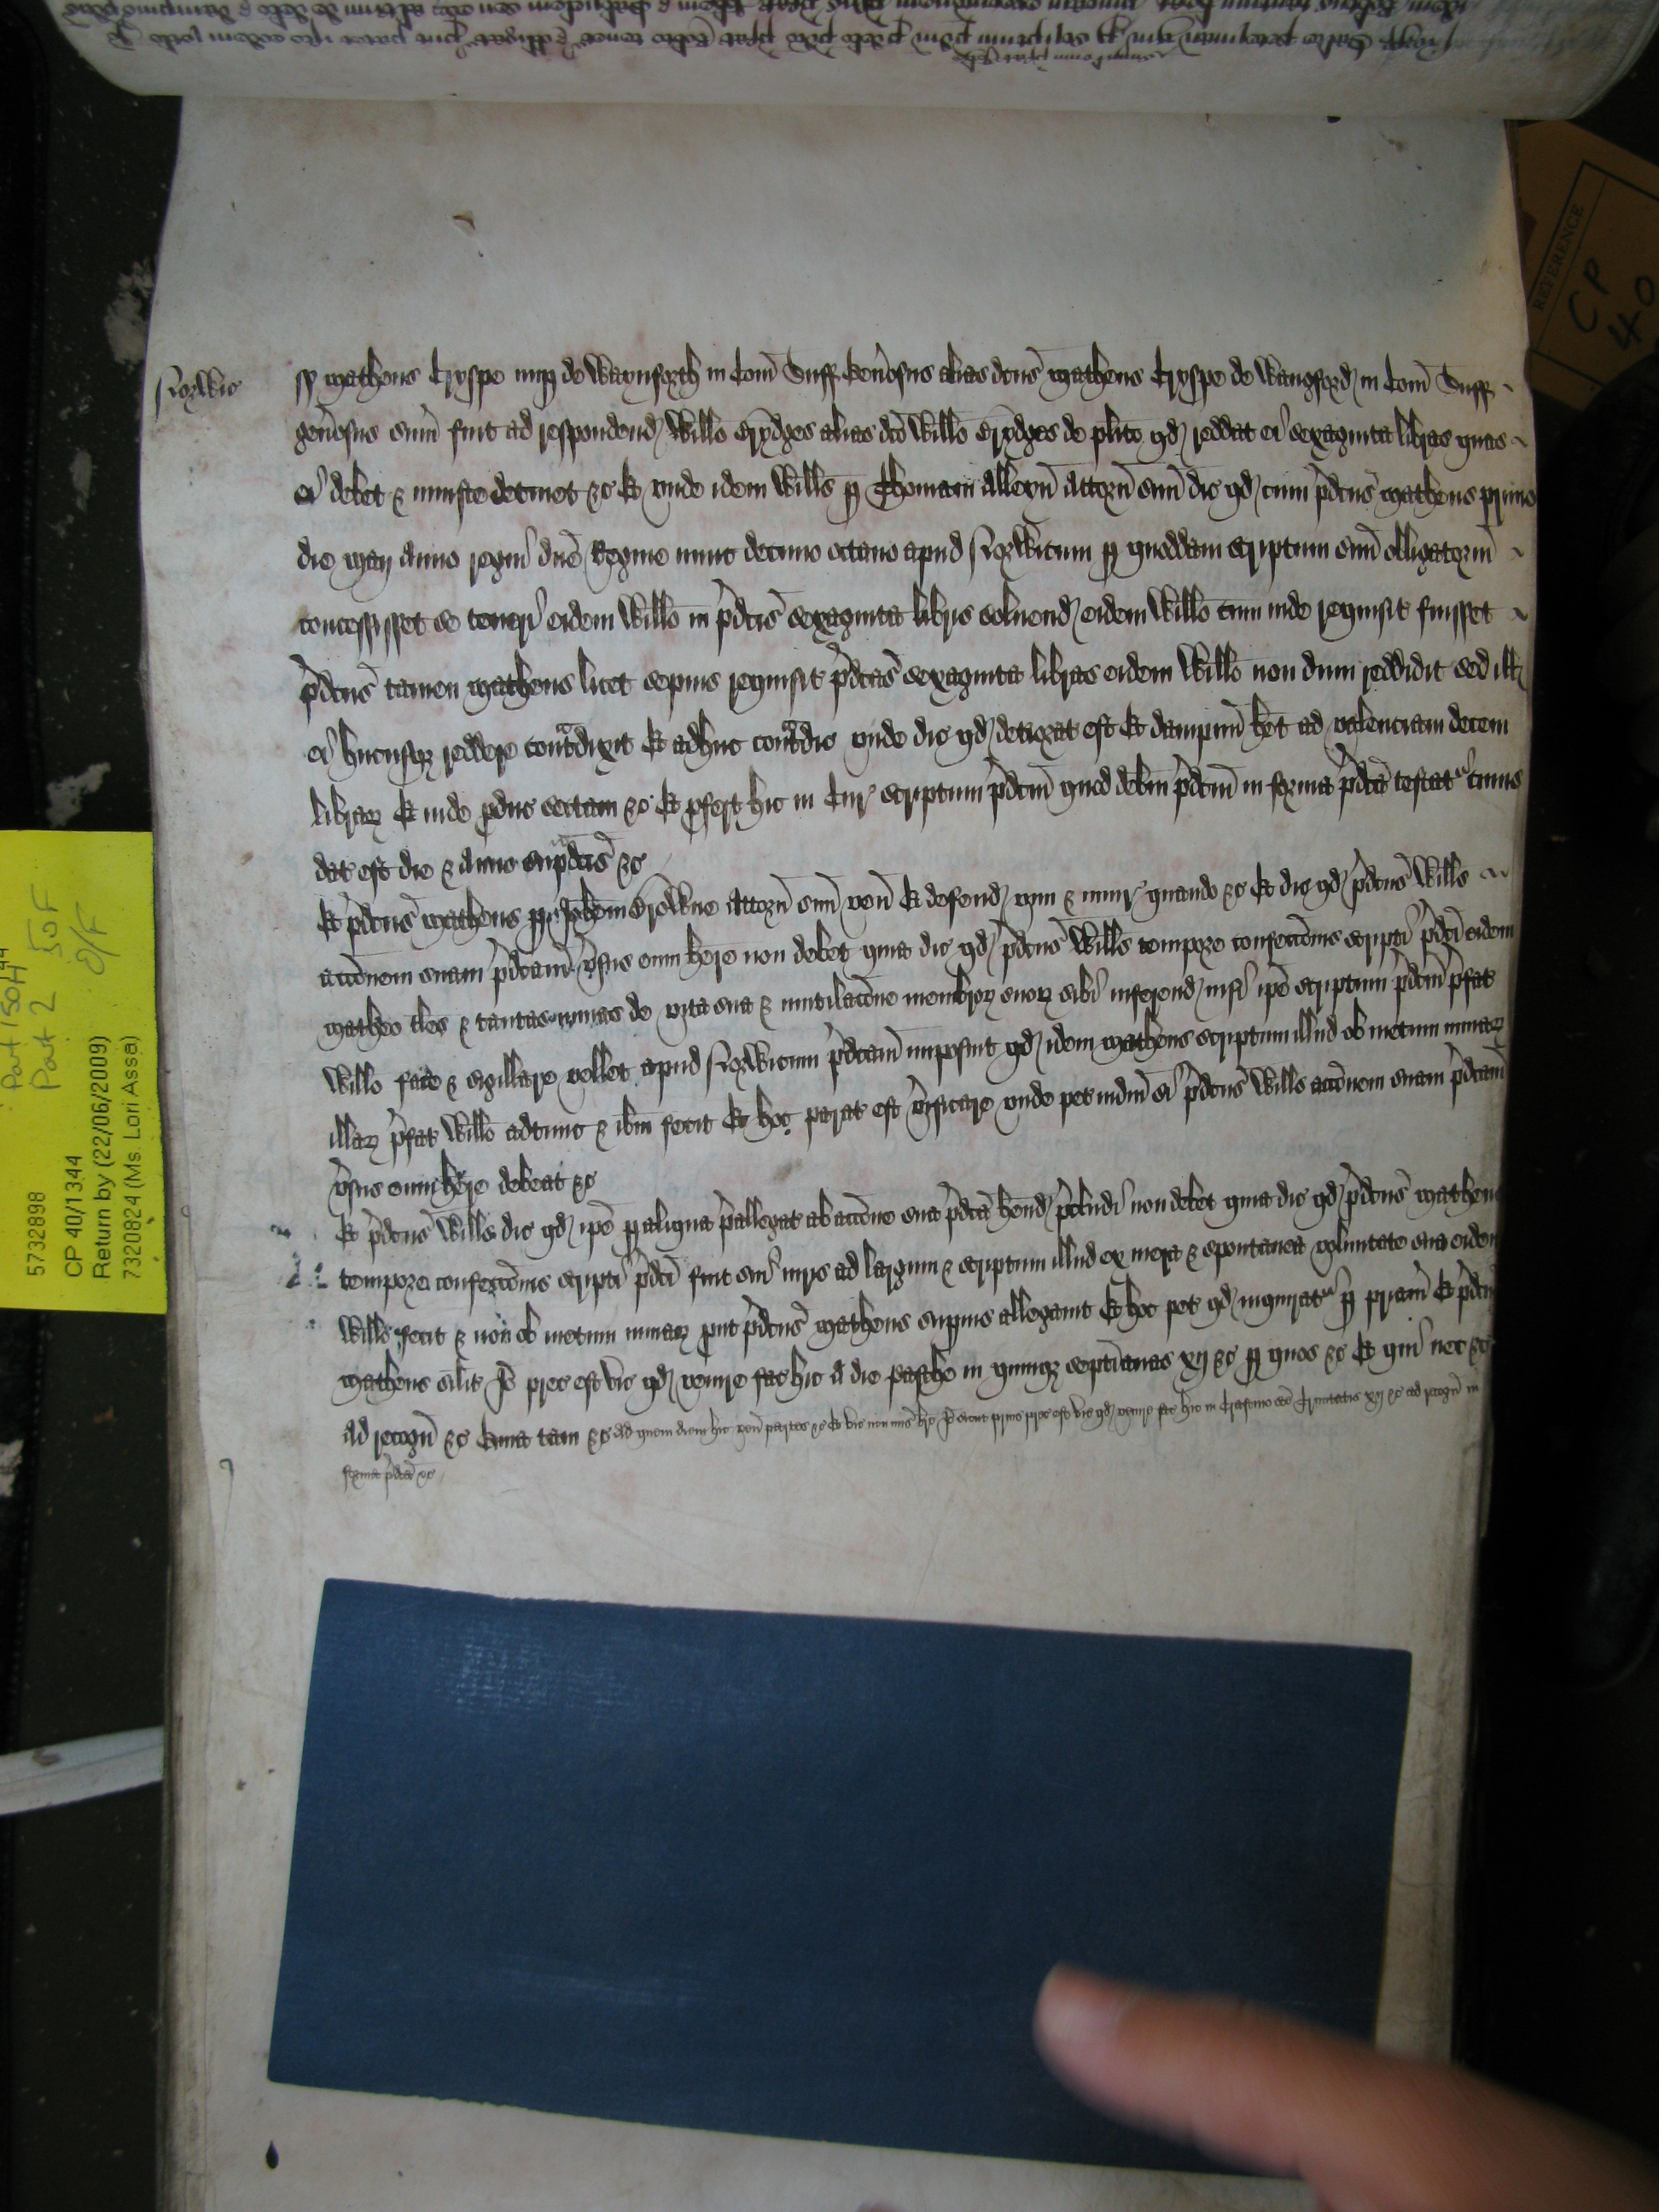 Norwic
ss Matheus Cryspe nup de Waynforth in Com Suff Generosus alias dcus Matheus Cryspe de Wangford in Com Suff
generosus sum fuit ad respondend Willo Brydges alias dco Willo Brydges de plito qd reddat ei sexaginta libras quas
ei debet & iniuste detinet &c Et unde idem Wills p Thomam Alleyn Attorn suu dic qd cum pdcus Matheus primo
die Maij Anno regni dne Regine nunc decimo octavo apud Norwicum p quoddam scriptum suu obligatorm
concessisset se teneri eidem Willo in pdcis sexaginta libris solvend eidem Willo cum inde requisit fuisset
pdcus tamen Matheus licet sepius requisit pdcas sexaginta libras eidem Willo non dum reddidit sed ill
ei hucusq reddere contradixit Et adhuc contradic unde dic qd deteriorat est Et dampnu het ad valenciam decem
librar Et inde pduc sectam &c Et pfert hic in Cur scriptum pdcm quod debm pdcm in forma pdca testat cuius
dat est die & Anno supradcis &c
Et pdcus Matheus p Johem Browne Attorn suu ven Et defend vim & iniur quando &c Et dic qd pdcus Wills
accionem suam pdcam vsus eum here non debet quia dic qd pdcus Wills tempore confeccionis scripti pdci eidem
Matheo tles & tantas minas de vita sua & mutilacone membror suor sibi inferend nisi ipe scriptum pdcm pfat
Willo face & sigillare vellet apud Norwicum pdcam imposuit qd idem Matheus scriptum illud ob metum minar
illar pfat Willo adtunc & ibm fecit Et hoc parat est verificare unde pet iudm si pdcus Wills accionem suam pdcam
vsus eum here debeat &c
Et pdcus Wills dic qd ipe p aliqua pallegat ab accione sua pdca hend pcludi non debet quia dic qd pdcus Matheus
tempore confeccionis scripti pdci fuit sui iuris ad largum & scriptum illud ex mera & spontanea voluntate sua eidem
Willo fecit & non ob metum minar put pdcus Matheus supius allegavit Et hoc pet qd inquirat p priam Et pdcus
Matheus silit Io prec est vic qd venire fac hic A die Pasche in quinq septimanas xij &c p quos &c Et qui nec &c
ad recogn &c Quia tam &c Ad quem diem hic ven partes &c Et vic non mis bre Io sicut primo prec est vic qd venire fac hic in Crastino sce Trinitatis xij &c ad recogn in
forma pdca &c
5732898
CP 40/1344
Return by (22/06/2009)
7320824 (Ms. Lori Assa)
Part 2
REFERENCE
CP
40